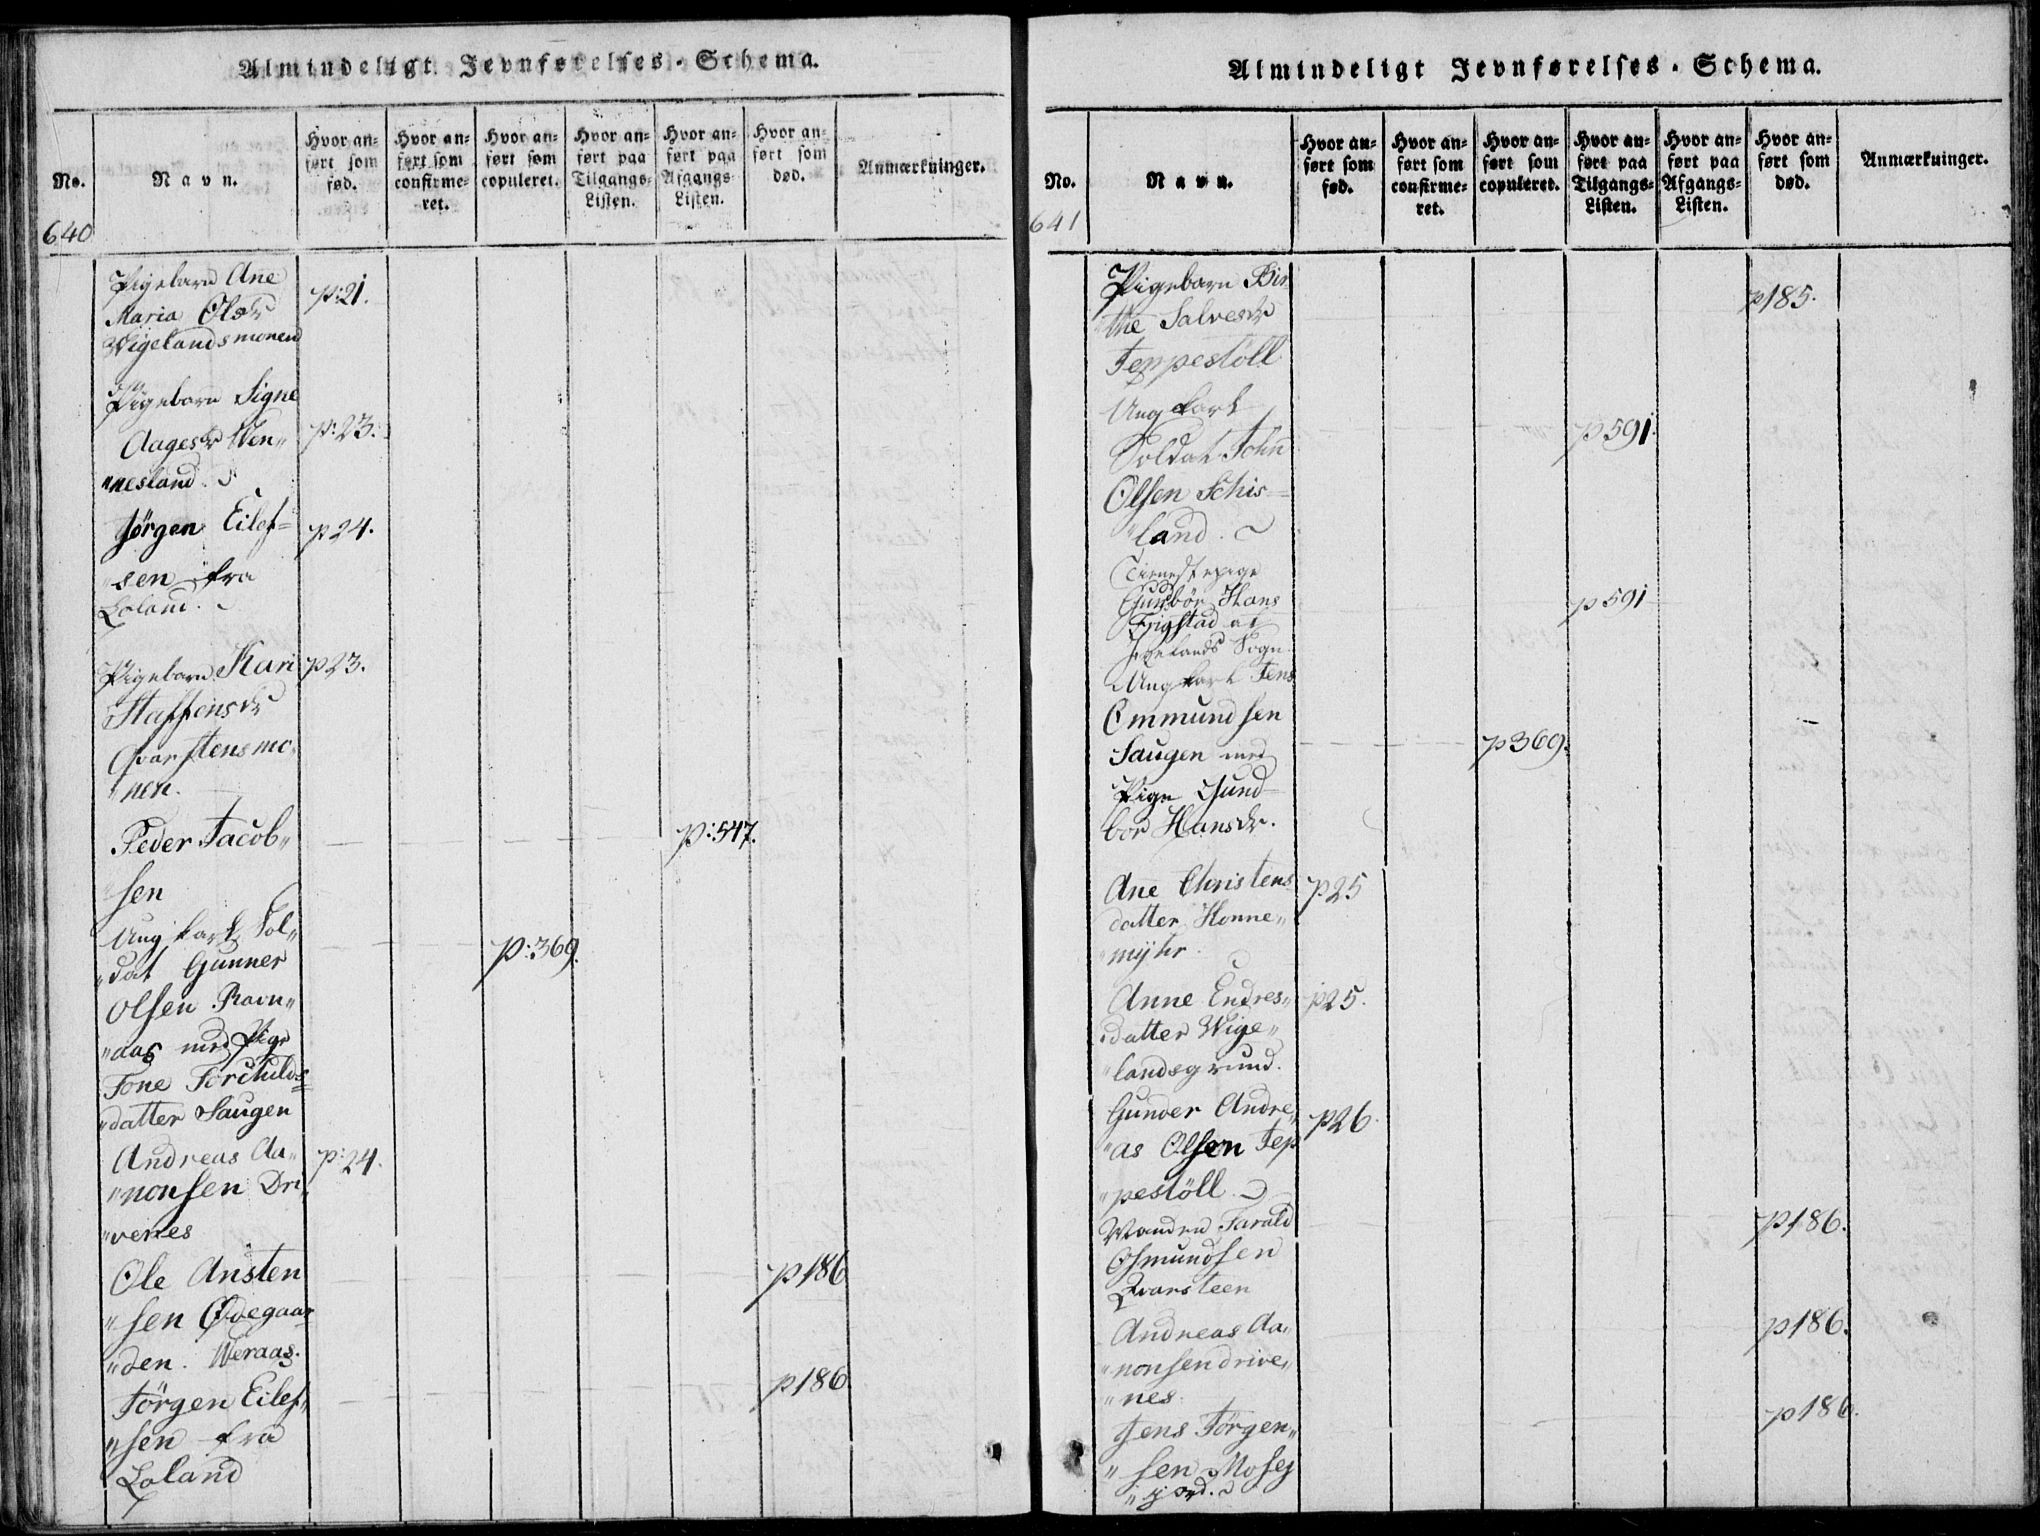 Almindeligt Jevnførelses-Schema.
No.
Navn.
Hvor an-
ført som
fød.
Hvor an-
ført som
confirme-
ret.
Hvor an-
ført som
copuleret.
Hvor an-
ført paa
Tilgangs-
Listen.
Hvor an-
ført paa
Afgangs-
Listen.
Hvor an-
ført som
død.
Anmærkninger.
640
Pigebarn Ane p:21.
Maria Olsdr
Wigelandsmonen
Pigebarn Signe
Aagesdr Wen„ p:23.
„nesland.
Jörgen Eilef= p24.
„sen fra
Loland.
Pigebarn Kari p23.
Staffensdr
Qvarstensmo„
„nen.
Peder Jacob„ p:547.
„sen
Ung karl Sol„
„dat Gunner p:369.
Olsen Ravn„
„aas med Pige
Tone Torchilds=
„datter Saugen
Andreas Aa„ p:24.
„nonsen Dri„
„venes
Ole Ansten p186
„sen Ødegaar
„den. Weraas.
Jörgen Eilef„ p186.
„sen fra
Loland
Almindeligt Jevnførelses-Schema.
No.
Navn.
Hvor an-
ført som
fød.
Hvor an-
ført som
confirme-
ret.
Hvor an-
ført som
copuleret.
Hvor an-
ført paa
Tilgangs-
Listen.
Hvor an-
ført paa
Afgangs-
Listen.
Hvor an-
ført som
død.
Anmærkninger.
641
Pigebarn Bir p185.
„the Salvesdr
Teppestöll
Ung karl p591.
Soldat John
Olsen Schis=
„land.
Tienestepige
Gunbör Hans p591
Frigstad af
Sogn
Ung karl Jens
Ommundsen
Saugen med p369.
Pige Gund=
bor Hansdr.
Ane Christens p25
datter Honne„
„myhr.
Anne Endres„ p25.
„datter Wige„
„landsgrund.
Gunder Andre„ p26.
„as Olsen Tep
„pestöll.
Manden Tarald p186.
Osmundsen
Qvarsteen
Andreas Aa„ p186.
„nonsen drive„
„nes.
Jens Jörgen„ p186.
„sen Mosej
„jord.